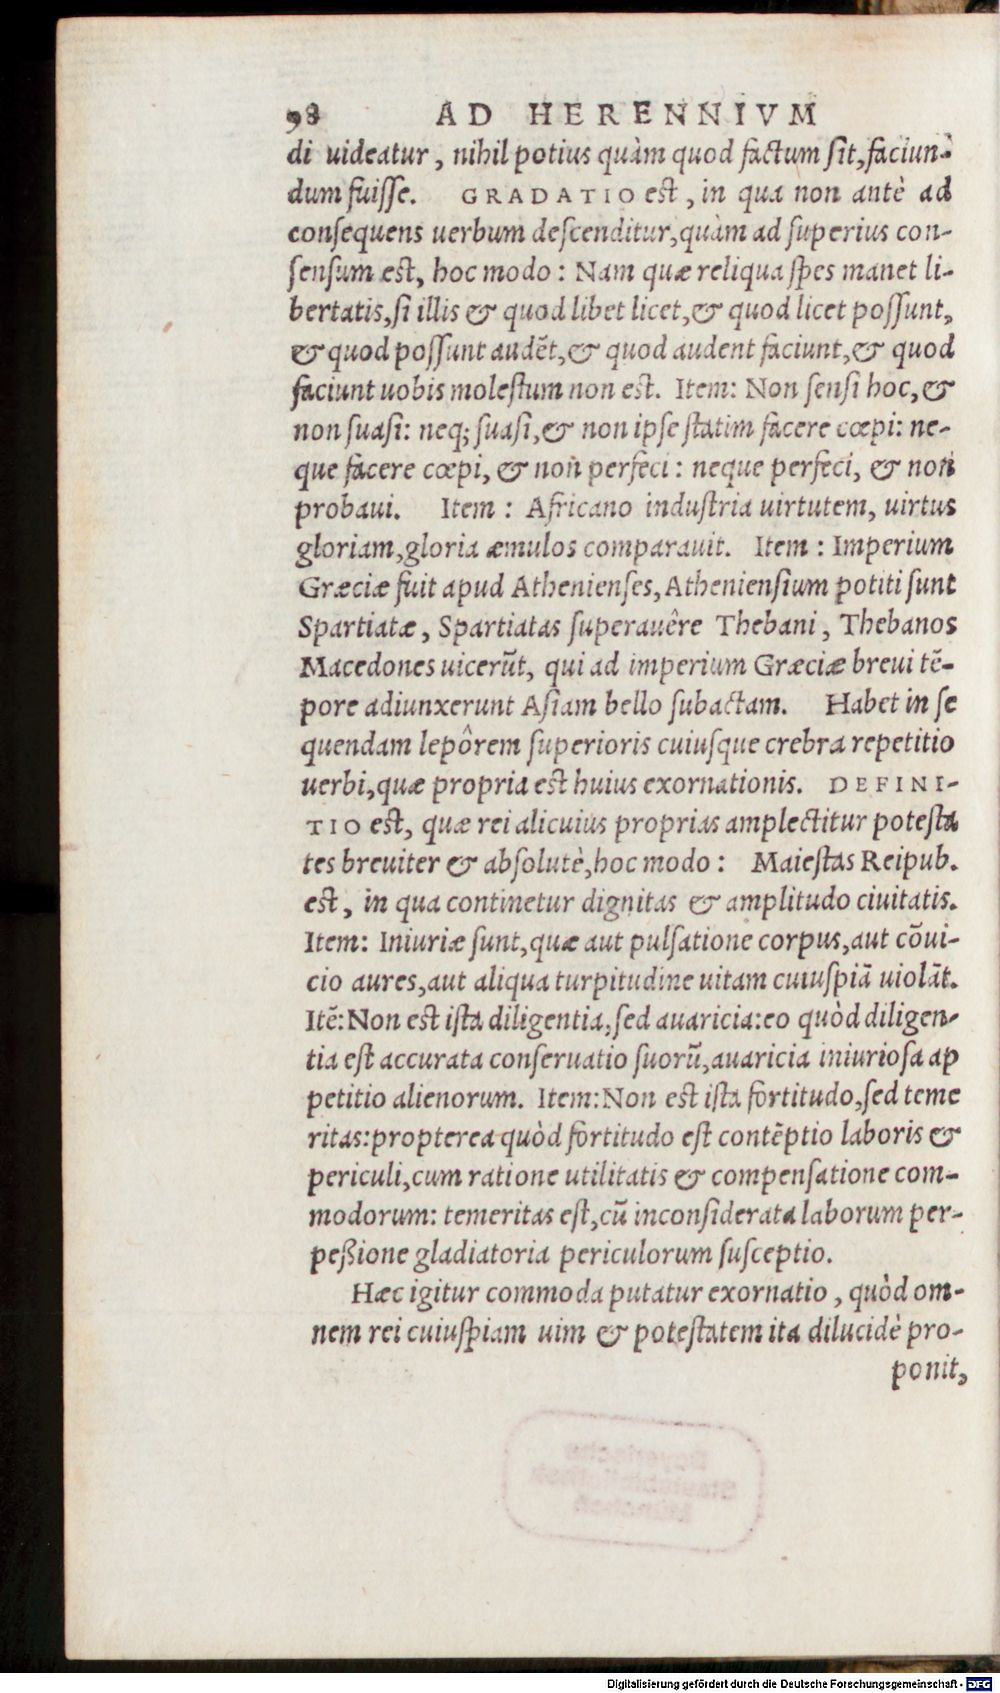 98 AD HERENNIVM
di uideatur, nihil potius quàm quod factum sit, faciun-
dum fuisse. GRADATIO est, in qua non antè ad
consequens uerbum descenditur, quàm ad superius con-
sensum est, hoc modo: Nam quæ reliqua spes manet li-
bertatis, si illis & quod libet licet, & quod licet possunt,
& quod possunt audẽt, & quod audent faciunt, & quod
faciunt uobis molestum non est. Item: Non sensi hoc, &
non suasi: neq; suasi, & non ipse statim facere cœpi: ne-
que facere cœpi, & non perfeci: neque perfeci, & non
probaui. Item: Africano industria uirtutem, uirtus
gloriam, gloria æmulos comparauit. Item: Imperium
Græciæ fuit apud Athenienses, Atheniensium potiti sunt
Spartiatæ, Spartiatas superauêre Thebani, Thebanos
Macedones uicerũt, qui ad imperium Græciæ breui tẽ-
pore adiunxerunt Asiam bello subactam. Habet in se
quendam lepôrem superioris cuiusque crebra repetitio
uerbi, quæ propria est huius exornationis. DEFINI-
TIO est, quæ rei alicuius proprias amplectitur potesta
tes breuiter & absolutè, hoc modo: Maiestas Reipub.
est, in qua continetur dignitas & amplitudo ciuitatis.
Item: Iniuriæ sunt, quæ aut pulsatione corpus, aut cõui-
cio aures, aut aliqua turpitudine uitam cuiuspiã uiolãt.
Itẽ: Non est ista diligentia, sed auaricia: eo quòd diligen-
tia est accurata conseruatio suorũ, auaricia iniuriosa ap
petitio alienorum. Item: Non est ista fortitudo, sed teme
ritas: propterea quòd fortitudo est contẽptio laboris &
periculi, cum ratione utilitatis & compensatione com-
modorum: temeritas est, cũ inconsiderata laborum per-
peßione gladiatoria periculorum susceptio.
Hæc igitur commoda putatur exornatio, quòd om-
nem rei cuiuspiam uim & potestatem ita dilucidè pro-
ponit,
Bayerische
Staatsbibliothek
München
Digitalisierung gefördert durch die Deutsche Forschungsgemeinschaft - DFG